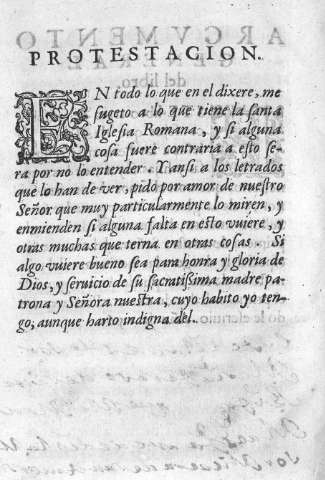 PROTESTACION.
EN todo lo que en el dixere, me
sugeto a lo que tiene la santa
Iglesia Romana, y si alguna
cosa fuere contraria a esto se-
ra por no lo entender. Y ansi a los letrados
que lo han de ver, pido por amor de nuestro
Señor que muy particularmente lo miren, y
enmienden si alguna falta en esto vuiere, y
otras muchas que terna en otras cosas. Si
algo vuiere bueno sea para honra y gloria de
Dios, y seruicio de su sacratissima madre pa-
trona y Señora nuestra, cuyo habito yo ten-
go, aunque harto indigna del.